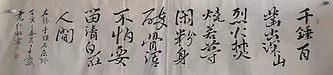 千錘百
鑿出深山
烈火焚
燒若等
閑粉身
碎骨渾
不怕要
留清白在
人間